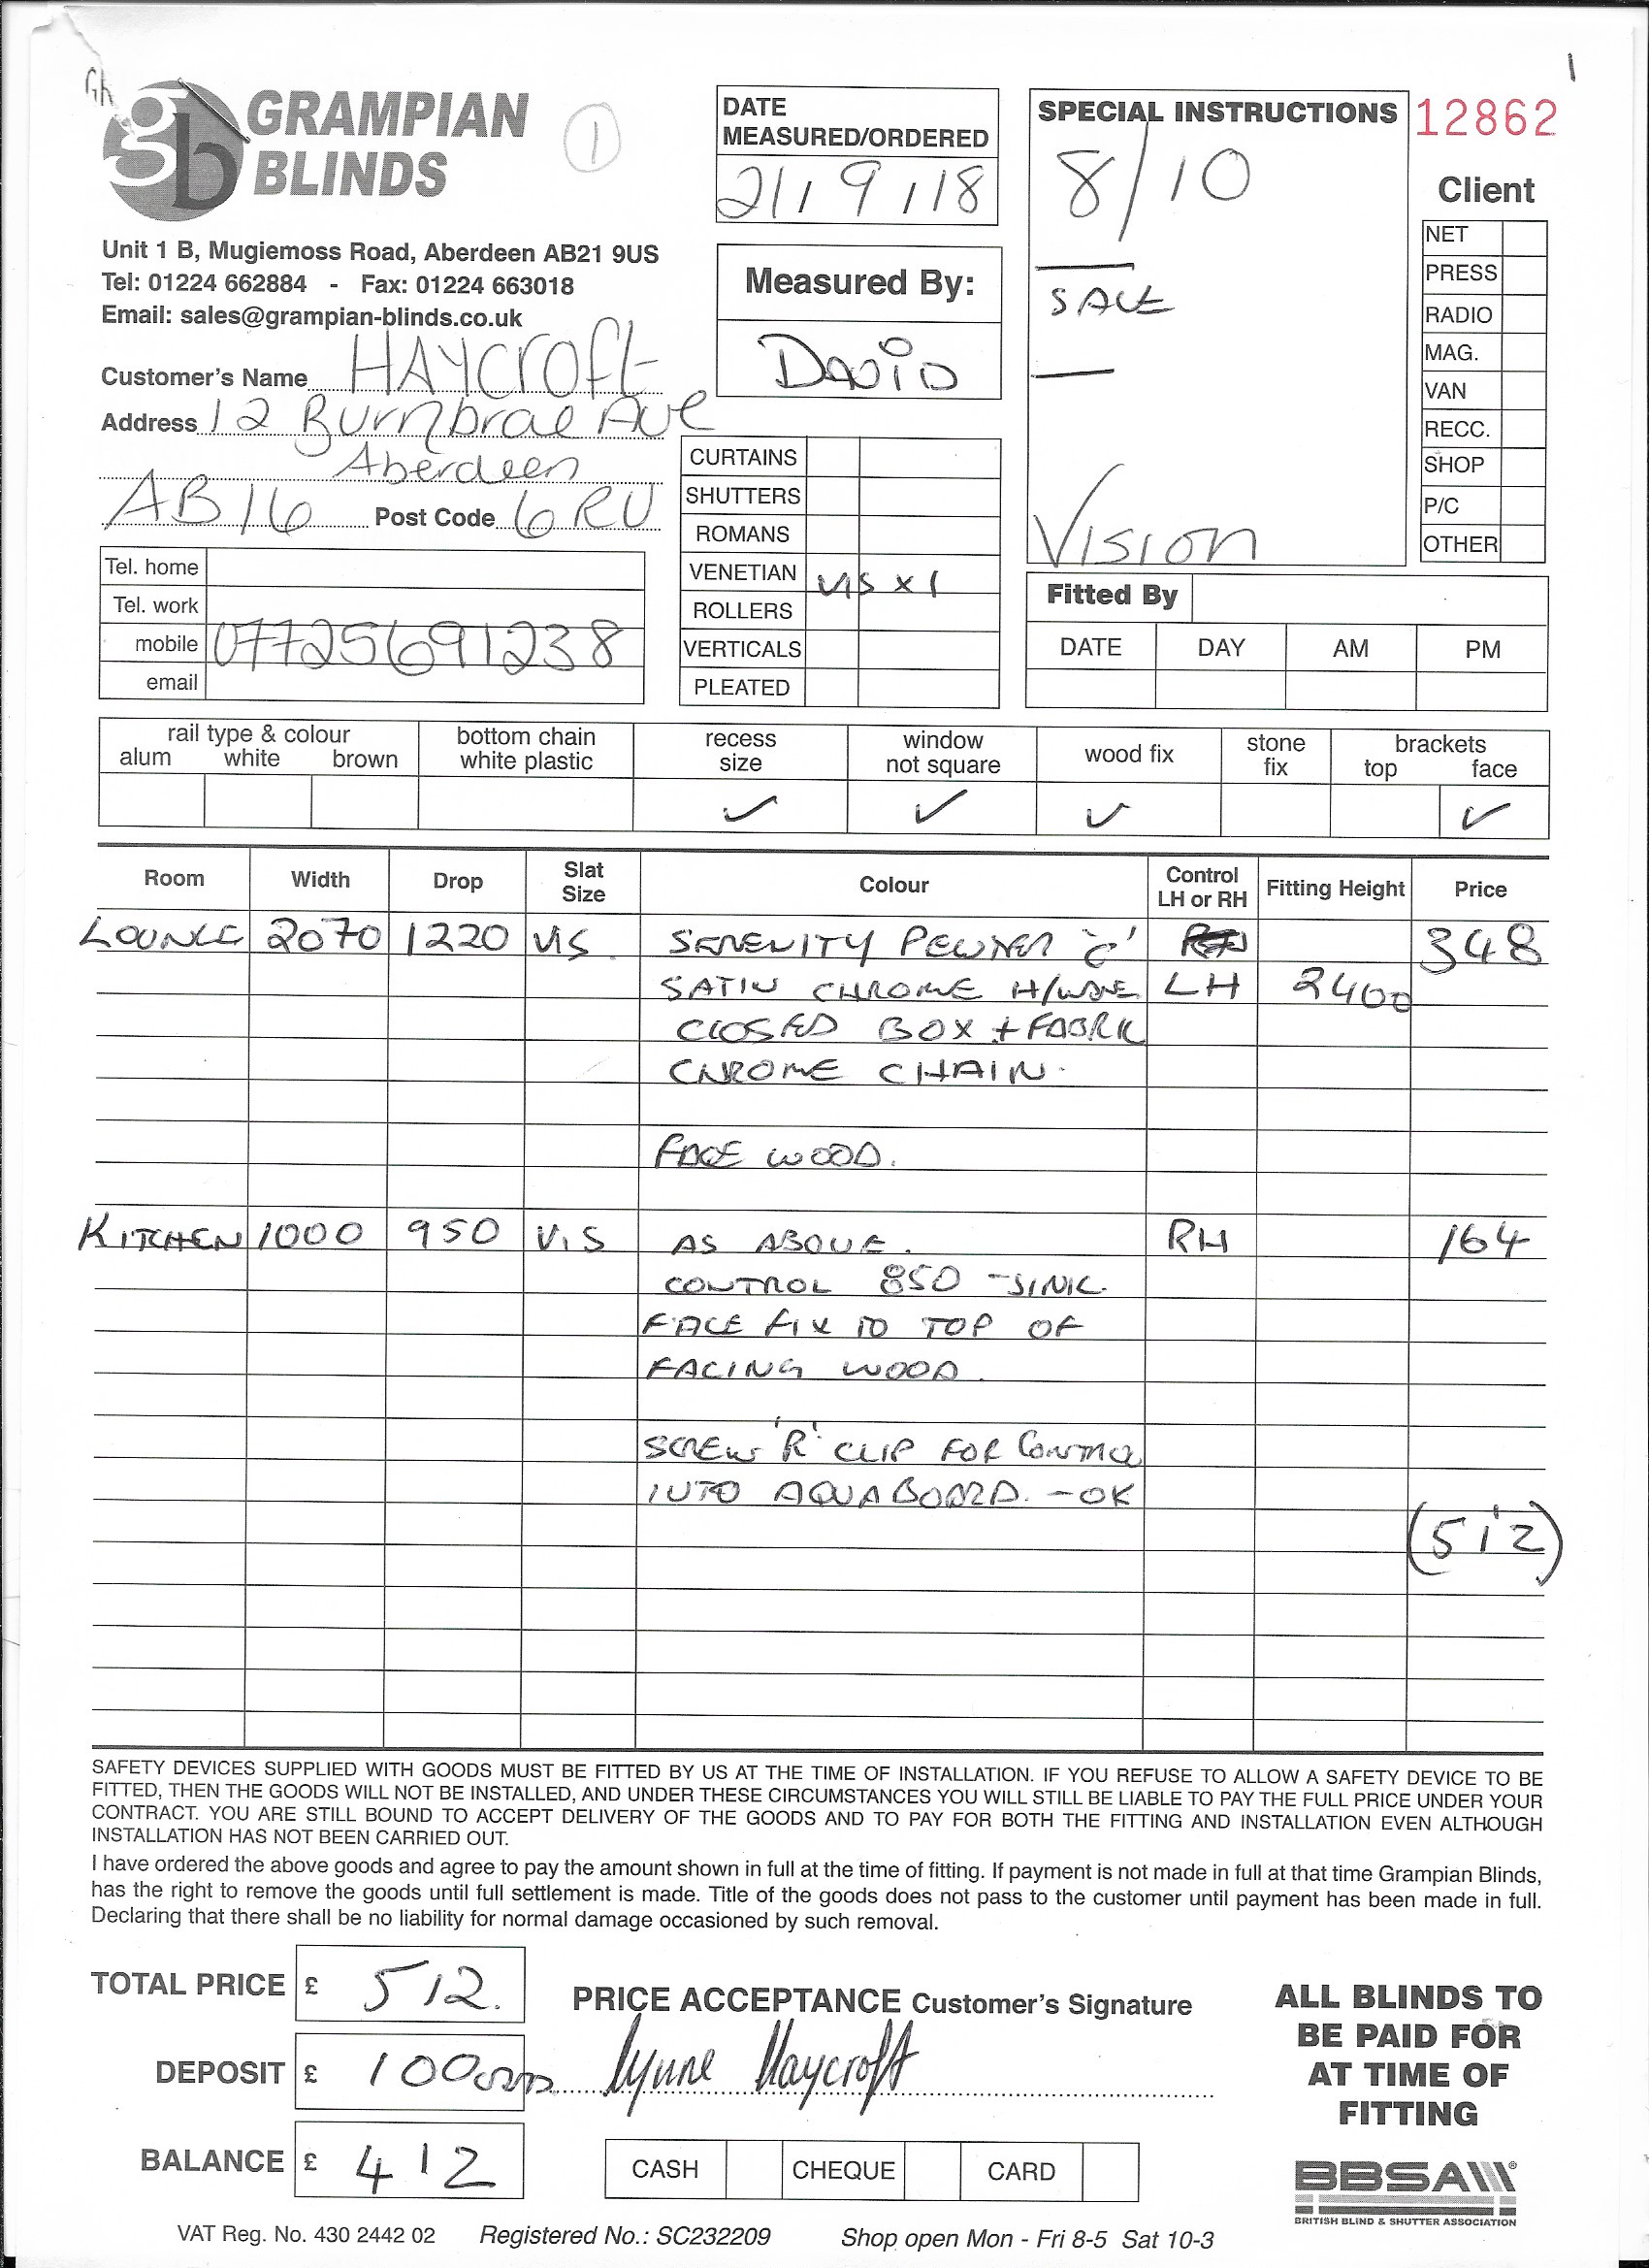 1
gb GRAMPIAN
BLINDS
1
DATE
MEASURED/ORDERED
21/9/18
SPECIAL INSTRUCTIONS
8/10
SALE
Vision
12862
Client
NET
PRESS
RADIO
MAG.
VAN
RECC.
SHOP
P/C
OTHER
Unit 1 B, Mugiemoss Road, Aberdeen AB21 9US
Tel: 01224 662884 - Fax: 01224 663018
Email: sales@grampian-blinds.co.uk
Measured By:
David
Customer's Name HAYCROFT
Address 12 Burnbrae Ave
Aberdeen
AB16 Post Code 6RU
Tel. home
Tel. work
mobile 07725691238
email
CURTAINS
SHUTTERS
ROMANS
VENETIAN VIS x 1
ROLLERS
VERTICALS
PLEATED
Fitted By
DATE DAY AM PM
rail type & colour
alum white brown
bottom chain
white plastic
recess
size
window
not square
wood fix
stone
fix
brackets
top face
✓ ✓ ✓ ✓
Room Width Drop Slat Size Colour Control LH or RH Fitting Height Price
LOUNGE 2070 1220 VIS SERENITY PEWTER 'C' 348
SATIN CHROME H/WARE LH 2400
CLOSED BOX + FABRIC
CHROME CHAIN.
FACE WOOD.
KITCHEN 1000 950 VIS AS ABOVE. RH 164
CONTROL 850 - SINK.
FACE FIX TO TOP OF
FACING WOOD.
SCREW 'R' CLIP FOR CONTROL
INTO AQUABOARD. - OK
(512)
SAFETY DEVICES SUPPLIED WITH GOODS MUST BE FITTED BY US AT THE TIME OF INSTALLATION. IF YOU REFUSE TO ALLOW A SAFETY DEVICE TO BE
FITTED, THEN THE GOODS WILL NOT BE INSTALLED, AND UNDER THESE CIRCUMSTANCES YOU WILL STILL BE LIABLE TO PAY THE FULL PRICE UNDER YOUR
CONTRACT. YOU ARE STILL BOUND TO ACCEPT DELIVERY OF THE GOODS AND TO PAY FOR BOTH THE FITTING AND INSTALLATION EVEN ALTHOUGH
INSTALLATION HAS NOT BEEN CARRIED OUT.
I have ordered the above goods and agree to pay the amount shown in full at the time of fitting. If payment is not made in full at that time Grampian Blinds,
has the right to remove the goods until full settlement is made. Title of the goods does not pass to the customer until payment has been made in full.
Declaring that there shall be no liability for normal damage occasioned by such removal.
TOTAL PRICE £ 512.
DEPOSIT £ 100
BALANCE £ 412
PRICE ACCEPTANCE Customer's Signature
Lynne Haycroft
CASH CHEQUE CARD
ALL BLINDS TO
BE PAID FOR
AT TIME OF
FITTING
BBSA
BRITISH BLIND & SHUTTER ASSOCIATION
VAT Reg. No. 430 2442 02 Registered No.: SC232209 Shop open Mon - Fri 8-5 Sat 10-3